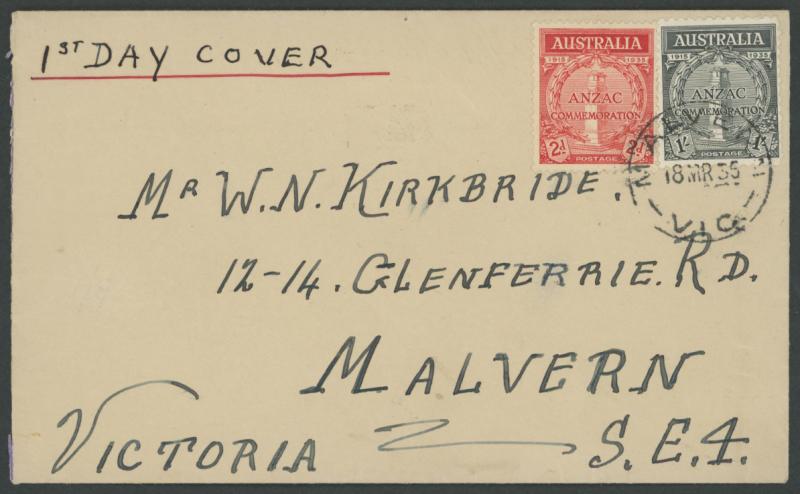 1ST DAY COVER
AUSTRALIA
1915 1935
ANZAC
COMMEMORATION
2d 2d
POSTAGE
AUSTRALIA
1915 1935
ANZAC
COMMEMORATION
1/- 1/-
POSTAGE
MALVERN
18 MR 35
VIC
MR W. N. KIRKBRIDE.
12-14. GLENFERRIE. RD.
MALVERN
VICTORIA S. E. 4.